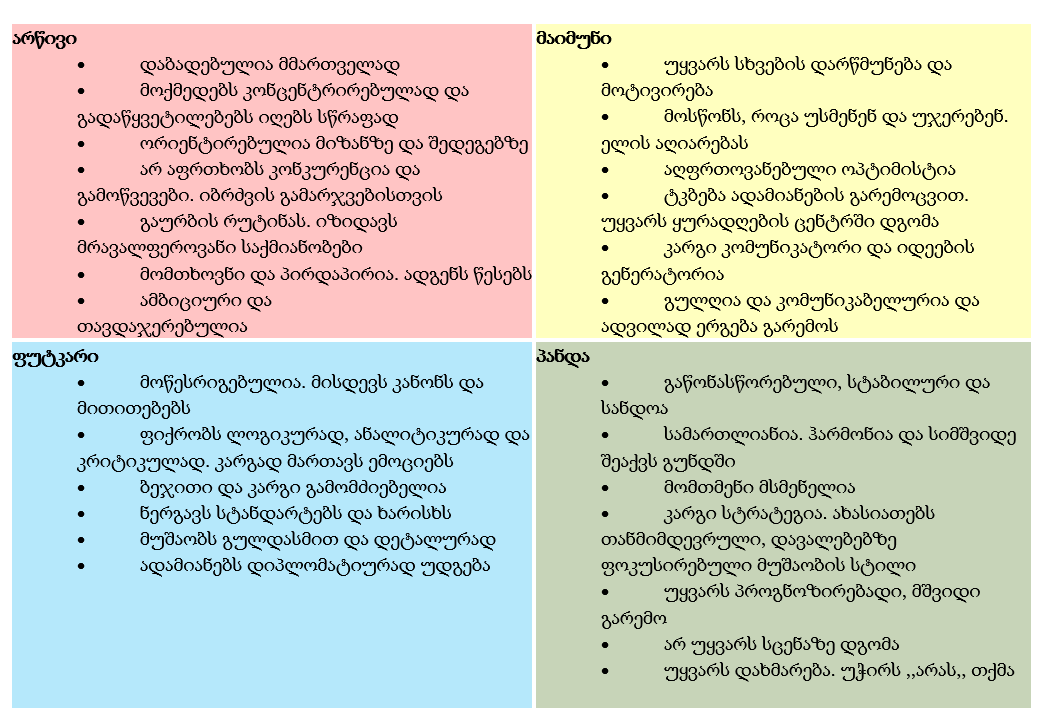 არწივი
• დაბადებულია მმართველად
• მოქმედებს კონცენტრირებულად და
გადაწყვეტილებებს იღებს სწრაფად
• ორიენტირებულია მიზანზე და შედეგებზე
• არ აფრთხობს კონკურენცია და
გამოწვევები. იბრძვის გამარჯვებისთვის
• გაურბის რუტინას. იზიდავს
მრავალფეროვანი საქმიანობები
• მომთხოვნი და პირდაპირია. ადგენს წესებს
• ამბიციური და
თავდაჯერებულია
მაიმუნი
• უყვარს სხვების დარწმუნება და
მოტივირება
• მოსწონს, როცა უსმენენ და უჯერებენ.
ელის აღიარებას
• აღფრთოვანებული ოპტიმისტია
• ტკბება ადამიანების გარემოცვით.
უყვარს ყურადღების ცენტრში დგომა
• კარგი კომუნიკატორი და იდეების
გენერატორია
• გულღია და კომუნიკაბელურია და
ადვილად ერგება გარემოს
ფუტკარი
• მოწესრიგებულია. მისდევს კანონს და
მითითებებს
• ფიქრობს ლოგიკურად, ანალიტიკურად და
კრიტიკულად. კარგად მართავს ემოციებს
• ბეჯითი და კარგი გამომძიებელია
• ნერგავს სტანდარტებს და ხარისხს
• მუშაობს გულდასმით და დეტალურად
• ადამიანებს დიპლომატიურად უდგება
პანდა
• გაწონასწორებული, სტაბილური და
სანდოა
• სამართლიანია. ჰარმონია და სიმშვიდე
შეაქვს გუნდში
• მომთმენი მსმენელია
• კარგი სტრატეგია. ახასიათებს
თანმიმდევრული, დავალებებზე
ფოკუსირებული მუშაობის სტილი
• უყვარს პროგნოზირებადი, მშვიდი
გარემო
• არ უყვარს სცენაზე დგომა
• უყვარს დახმარება. უჭირს ,,არას,, თქმა